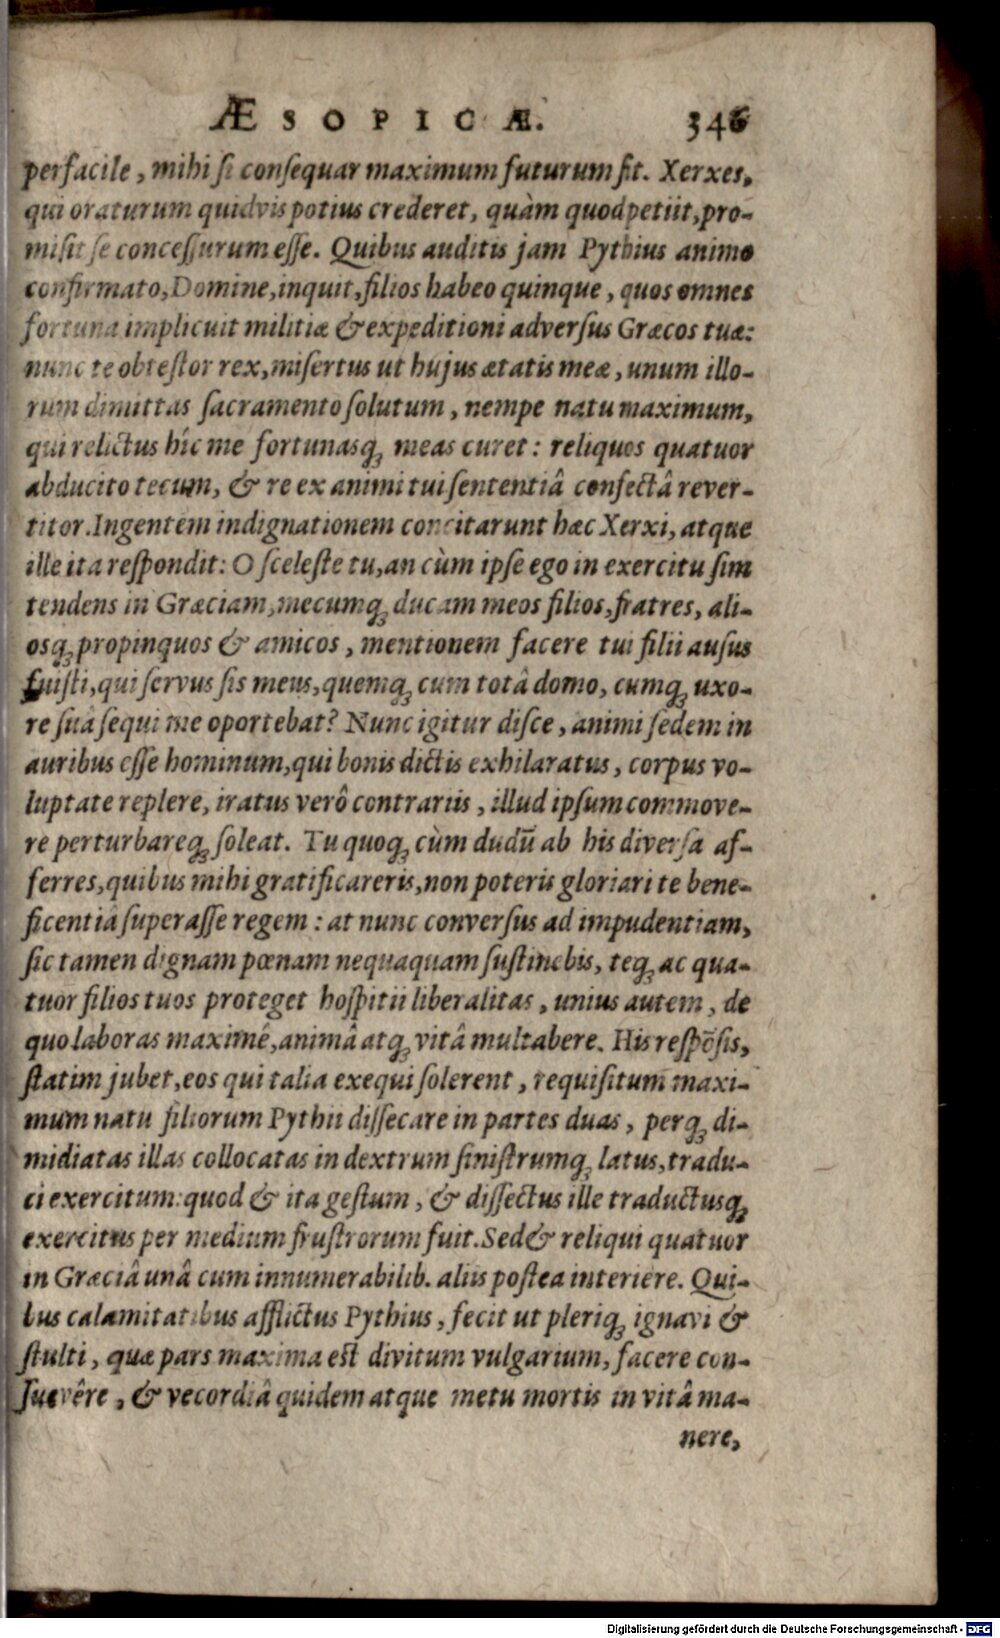 ÆSOPICÆ. 346
perfacile, mihi si consequar maximum futurum sit. Xerxes,
qui oraturum quidvis potius crederet, quàm quod petiit, pro-
misit se concessurum esse. Quibus auditis jam Pythius animo
confirmato, Domine, inquit, filios habeo quinque, quos omnes
fortuna implicuit militiæ & expeditioni adversus Græcos tuæ:
nunc te obtestor rex, misertus ut hujus ætatis meæ, unum illo-
rum dimittas sacramento solutum, nempe natu maximum,
qui relictus hîc me fortunasq́; meas curet: reliquos quatuor
abducito tecum, & re ex animi tui sententiâ confectâ rever-
titor. Ingentem indignationem concitarunt hæc Xerxi, atque
ille ita respondit: O sceleste tu, an cùm ipse ego in exercitu sim
tendens in Græciam, mecumq́; ducam meos filios, fratres, ali-
osq́; propinquos & amicos, mentionem facere tui filii ausus
fuisti, qui servus sis meus, quemq́; cum totâ domo, cumq́; uxo-
re suâ sequi me oportebat? Nunc igitur disce, animi sedem in
auribus esse hominum, qui bonis dictis exhilaratus, corpus vo-
luptate replere, iratus verô contrariis, illud ipsum commove-
re perturbareq́; soleat. Tu quoq́; cùm dudũ ab his diversa af-
ferres, quibus mihi gratificareris, non poteris gloriari te bene-
ficentiâ superasse regem: at nunc conversus ad impudentiam,
sic tamen dignam pœnam nequaquam sustinebis, teq́; ac qua-
tuor filios tuos proteget hospitii liberalitas, unius autem, de
quo laboras maximé, animâ atq́; vitâ multabere. His respōsis,
statim jubet, eos qui talia exequi solerent, requisitum maxi-
mum natu filiorum Pythii dissecare in partes duas, perq́; di-
midiatas illas collocatas in dextrum sinistrumq́; latus, tradu-
ci exercitum: quod & ita gestum, & dissectus ille traductusq́;
exercitus per medium frustrorum fuit. Sed & reliqui quatuor
in Græciâ unâ cum innumerabilib. aliis postea interiere. Qui-
bus calamitatibus afflictus Pythius, fecit ut pleriq́; ignavi &
stulti, quæ pars maxima est divitum vulgarium, facere con-
suevêre, & vecordiâ quidem atque metu mortis in vitâ ma-
nere,
Digitalisierung gefördert durch die Deutsche Forschungsgemeinschaft - DFG